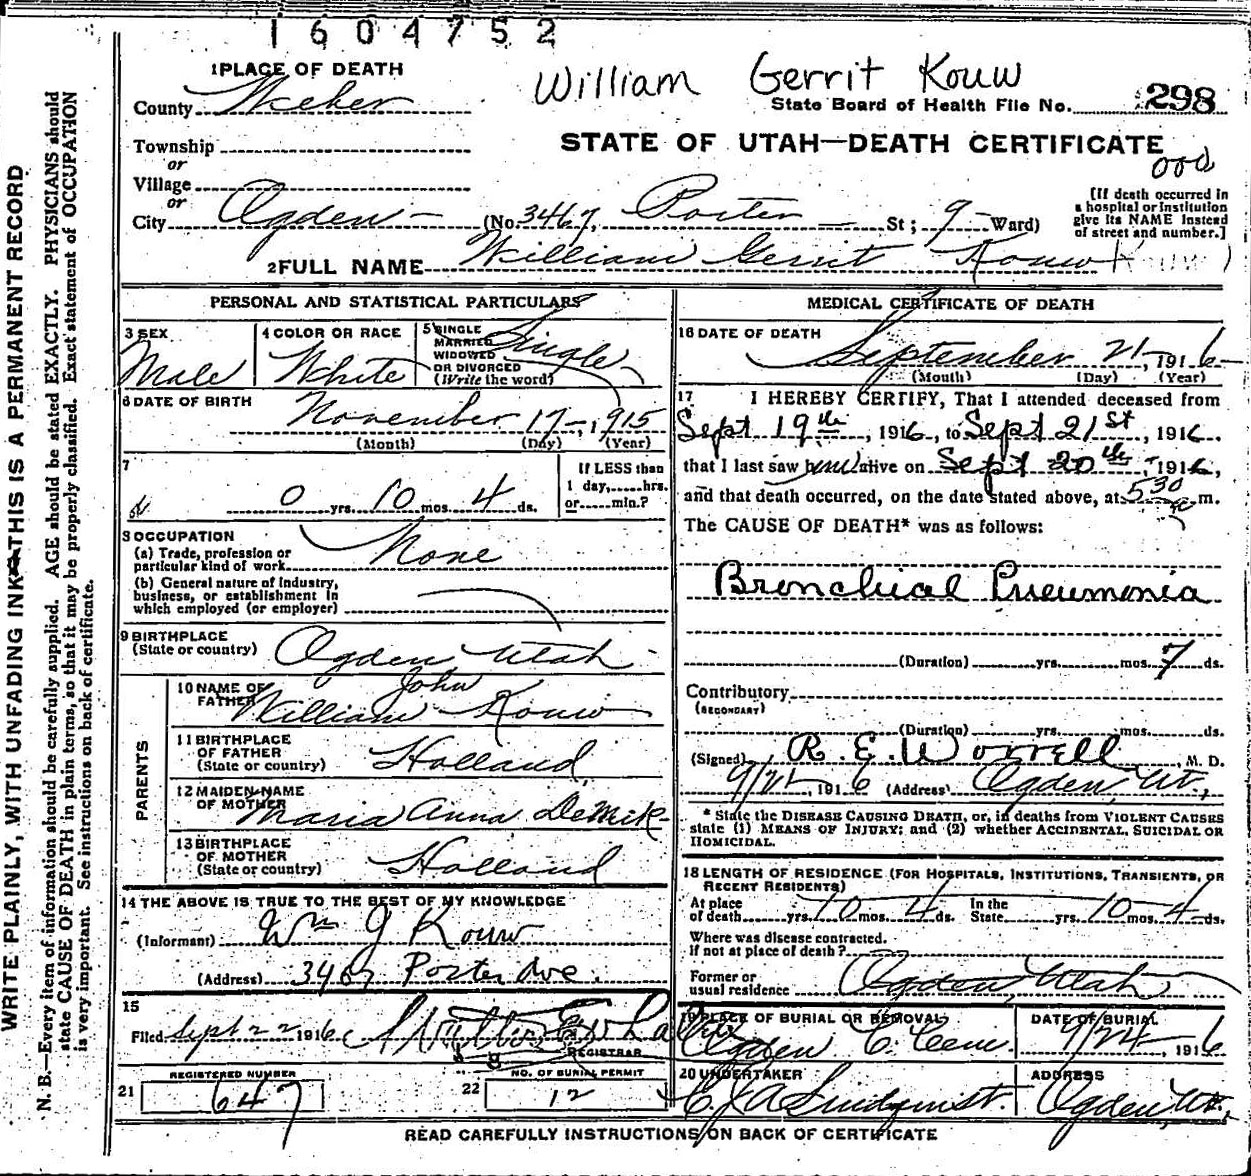 1604752
William Gerrit Kouw
1 PLACE OF DEATH
County Weber
State Board of Health File No. 298
Township
STATE OF UTAH—DEATH CERTIFICATE
or
Village
or
City Ogden — (No. 3467, Porter — St; 9 Ward)
[If death occurred in
a hospital or institution
give its NAME instead
of street and number.]
2 FULL NAME William Gerrit Kouw Kouw
PERSONAL AND STATISTICAL PARTICULARS
3 SEX
Male
4 COLOR OR RACE
White
5 SINGLE
MARRIED
WIDOWED
OR DIVORCED
(Write the word)
Single
6 DATE OF BIRTH
November 17, 1915
(Month) (Day) (Year)
7
0 yrs. 10 mos. 4 ds.
If LESS than
1 day,.....hrs.
or.....min.?
8 OCCUPATION
(a) Trade, profession or
particular kind of work None
(b) General nature of industry,
business, or establishment in
which employed (or employer)
9 BIRTHPLACE
(State or country) Ogden Utah
PARENTS
10 NAME OF
FATHER William John Kouw
11 BIRTHPLACE
OF FATHER
(State or country) Holland
12 MAIDEN NAME
OF MOTHER Maria Anna DeMik
13 BIRTHPLACE
OF MOTHER
(State or country) Holland
14 THE ABOVE IS TRUE TO THE BEST OF MY KNOWLEDGE
(Informant) Wm J Kouw
(Address) 3467 Porter Ave.
15
Filed Sept 22 1916
REGISTRAR
REGISTERED NUMBER
21 647
NO. OF BURIAL PERMIT
22 12
MEDICAL CERTIFICATE OF DEATH
16 DATE OF DEATH
September 21, 1916
(Month) (Day) (Year)
17 I HEREBY CERTIFY, That I attended deceased from
Sept 19th, 1916, to Sept 21st, 1916.
that I last saw him alive on Sept 20th, 1916,
and that death occurred, on the date stated above, at 530 a m.
The CAUSE OF DEATH* was as follows:
Bronchial Pneumonia
(Duration) yrs. mos. 7 ds.
Contributory
(SECONDARY)
(Duration) yrs. mos. ds.
(Signed) R. E. Worrell, M. D.
9/21, 1916 (Address) Ogden, Ut.,
* State the DISEASE CAUSING DEATH, or, in deaths from VIOLENT CAUSES
state (1) MEANS OF INJURY; and (2) whether ACCIDENTAL, SUICIDAL OR
HOMICIDAL.
18 LENGTH OF RESIDENCE (FOR HOSPITALS, INSTITUTIONS, TRANSIENTS, OR
RECENT RESIDENTS)
At place
of death yrs. 10 mos. 4 ds.
In the
State yrs. 10 mos. 4 ds.
Where was disease contracted.
if not at place of death?
Former or
usual residence Ogden, Utah
19 PLACE OF BURIAL OR REMOVAL
Ogden C. Cem.
DATE OF BURIAL
9/24, 1916
20 UNDERTAKER
C. J. A Lindquist.
ADDRESS
Ogden, Ut.,
READ CAREFULLY INSTRUCTIONS ON BACK OF CERTIFICATE
WRITE PLAINLY, WITH UNFADING INK—THIS IS A PERMANENT RECORD
N. B.—Every item of information should be carefully supplied. AGE should be stated EXACTLY. PHYSICIANS should
state CAUSE OF DEATH in plain terms, so that it may be properly classified. Exact statement of OCCUPATION
is very important. See instructions on back of certificate.